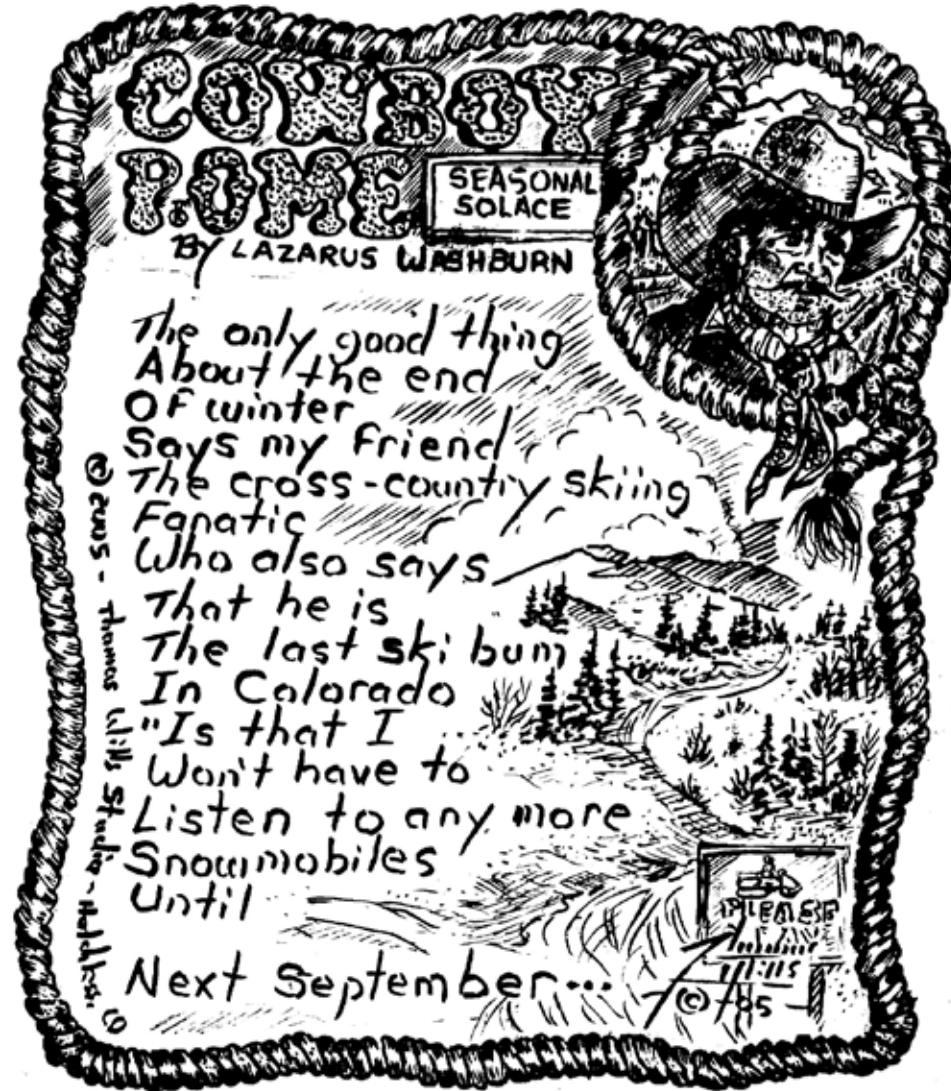 COWBOY
POME
SEASONAL
SOLACE
By LAZARUS WASHBURN
The only good thing
About the end
Of winter
Says my friend
The cross-country skiing
Fanatic
Who also says
That he is
The last ski bum
In Colorado
"Is that I
Won't have to
Listen to any more
Snowmobiles
Until
Next September...
© 2005 - Thomas Wills Studio -
PLEASE
Wills